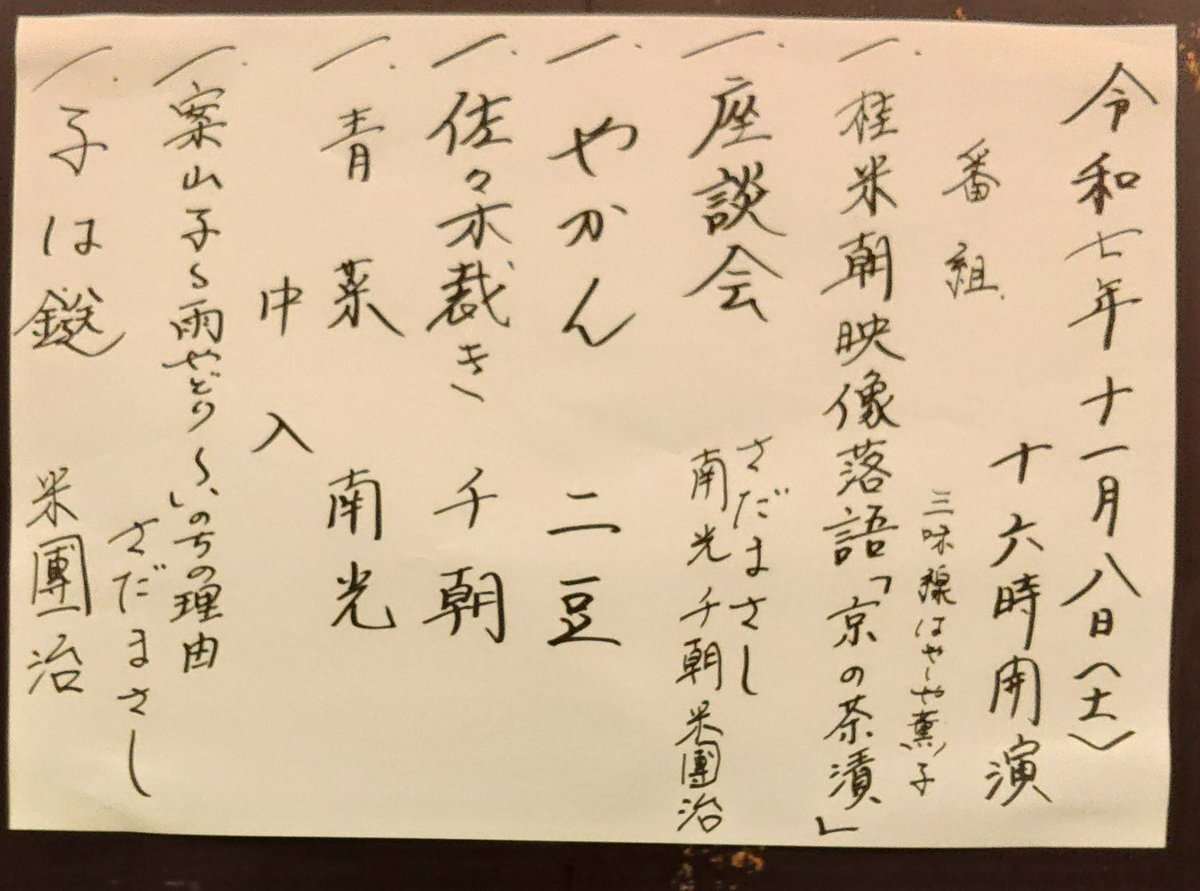 令和七年十一月八日(土)
十六時開演
番組
三味線はやしや薫子
一、桂米朝映像落語「京の茶漬」
一、座談会
さだまさし
南光 千朝 米團治
一、やかん 二豆
一、佐々木裁き 千朝
一、青菜 南光
中入
一、案山子〜雨やどり〜いのちの理由
さだまさし
一、子は鎹 米團治